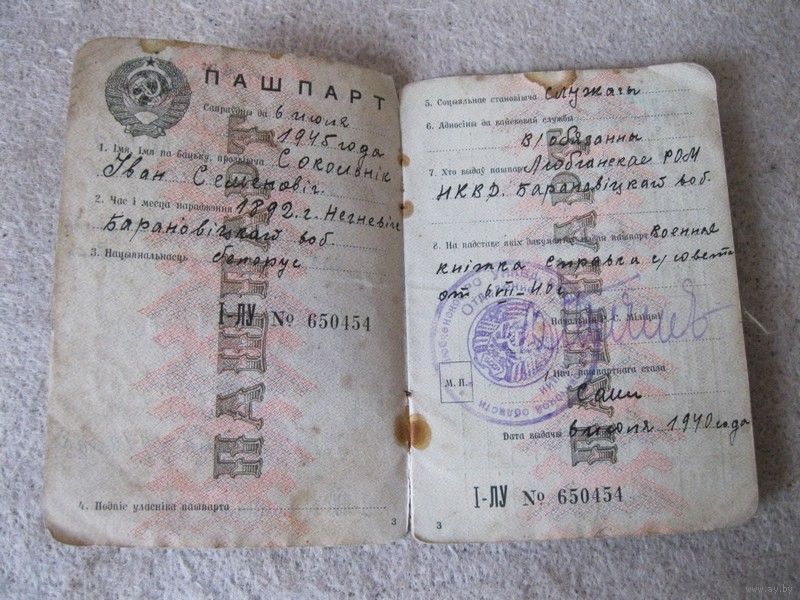 ПАШПАРТ
Сапраўдны да 6 июля
1945 года
1. Імя, імя па бацьку, прозвішча Сокольнік
Іван Семеновіч.
2. Час і месца нараджэння 1892.г. Негневічі
Барановіцкай воб.
3. Нацыянальнасць белорус
I-ЛУ № 650454
ПАШПАРТ
4. Подпіс уласніка пашпарта
3
5. Соцыяльнае становішча служачы
6. Адносіны да вайсковай службы
В/обязанны
7. Хто выдаў пашпарт Любчанскае РОМ
НКВД. Барановіцкай воб.
8. На падставе якіх дакументаў выдан пашпарт Военная
кніжка справка с/совета
от
Начальнік Міліцыі
М. П.
Нач. пашпартнага стала
Дата выдачы 6 июля 1940 года
I-ЛУ № 650454
ПАШПАРТ
3
www.ay.by